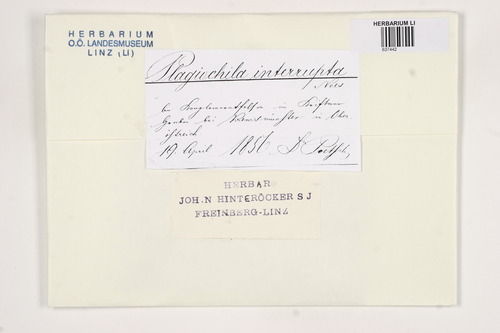 HERBARIUM
O.Ö. LANDESMUSEUM
LINZ (LI)
HERBARIUM LI
Plagiochila interrupta
Nees
bei Kremsmünster in Ober
östreich
19. April 1856 Dr Poetsch
HERBAR
JOH.N HINTERÖCKER S J
FREINBERG-LINZ